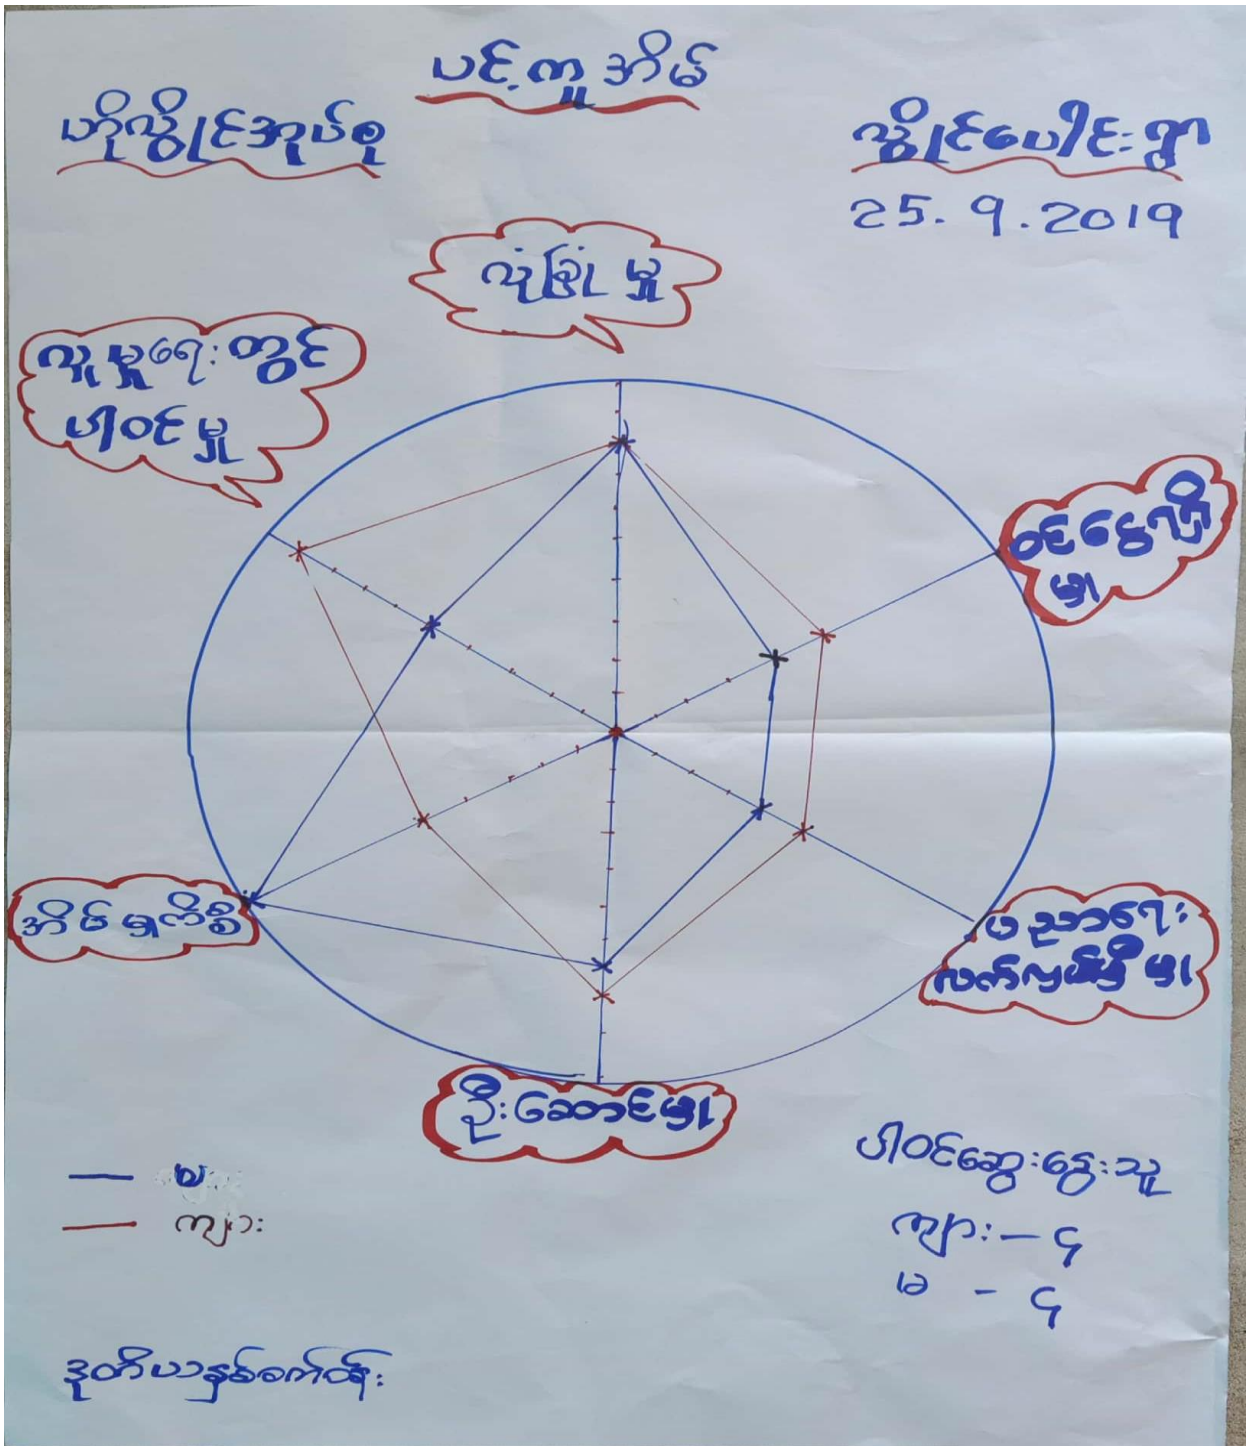 ပင့်ကူအိမ်
ဟိုလှိုင်အုပ်စု
လှိုင်ပေါင်းရွာ
25.9.2019
လုံခြုံမှု
လူမှုရေးတွင်
ပါဝင်မှု
ဝင်ငွေရရှိ
မှု
အိမ်မှုကိစ္စ
ပညာရေး
လက်လှမ်းမှီမှု
ဦးဆောင်မှု
မ
ကျား
ပါဝင်ဆွေးနွေးသူ
ကျား – ၄
မ – ၄
ဒုတိယနှစ်ဝက်ဝန်း